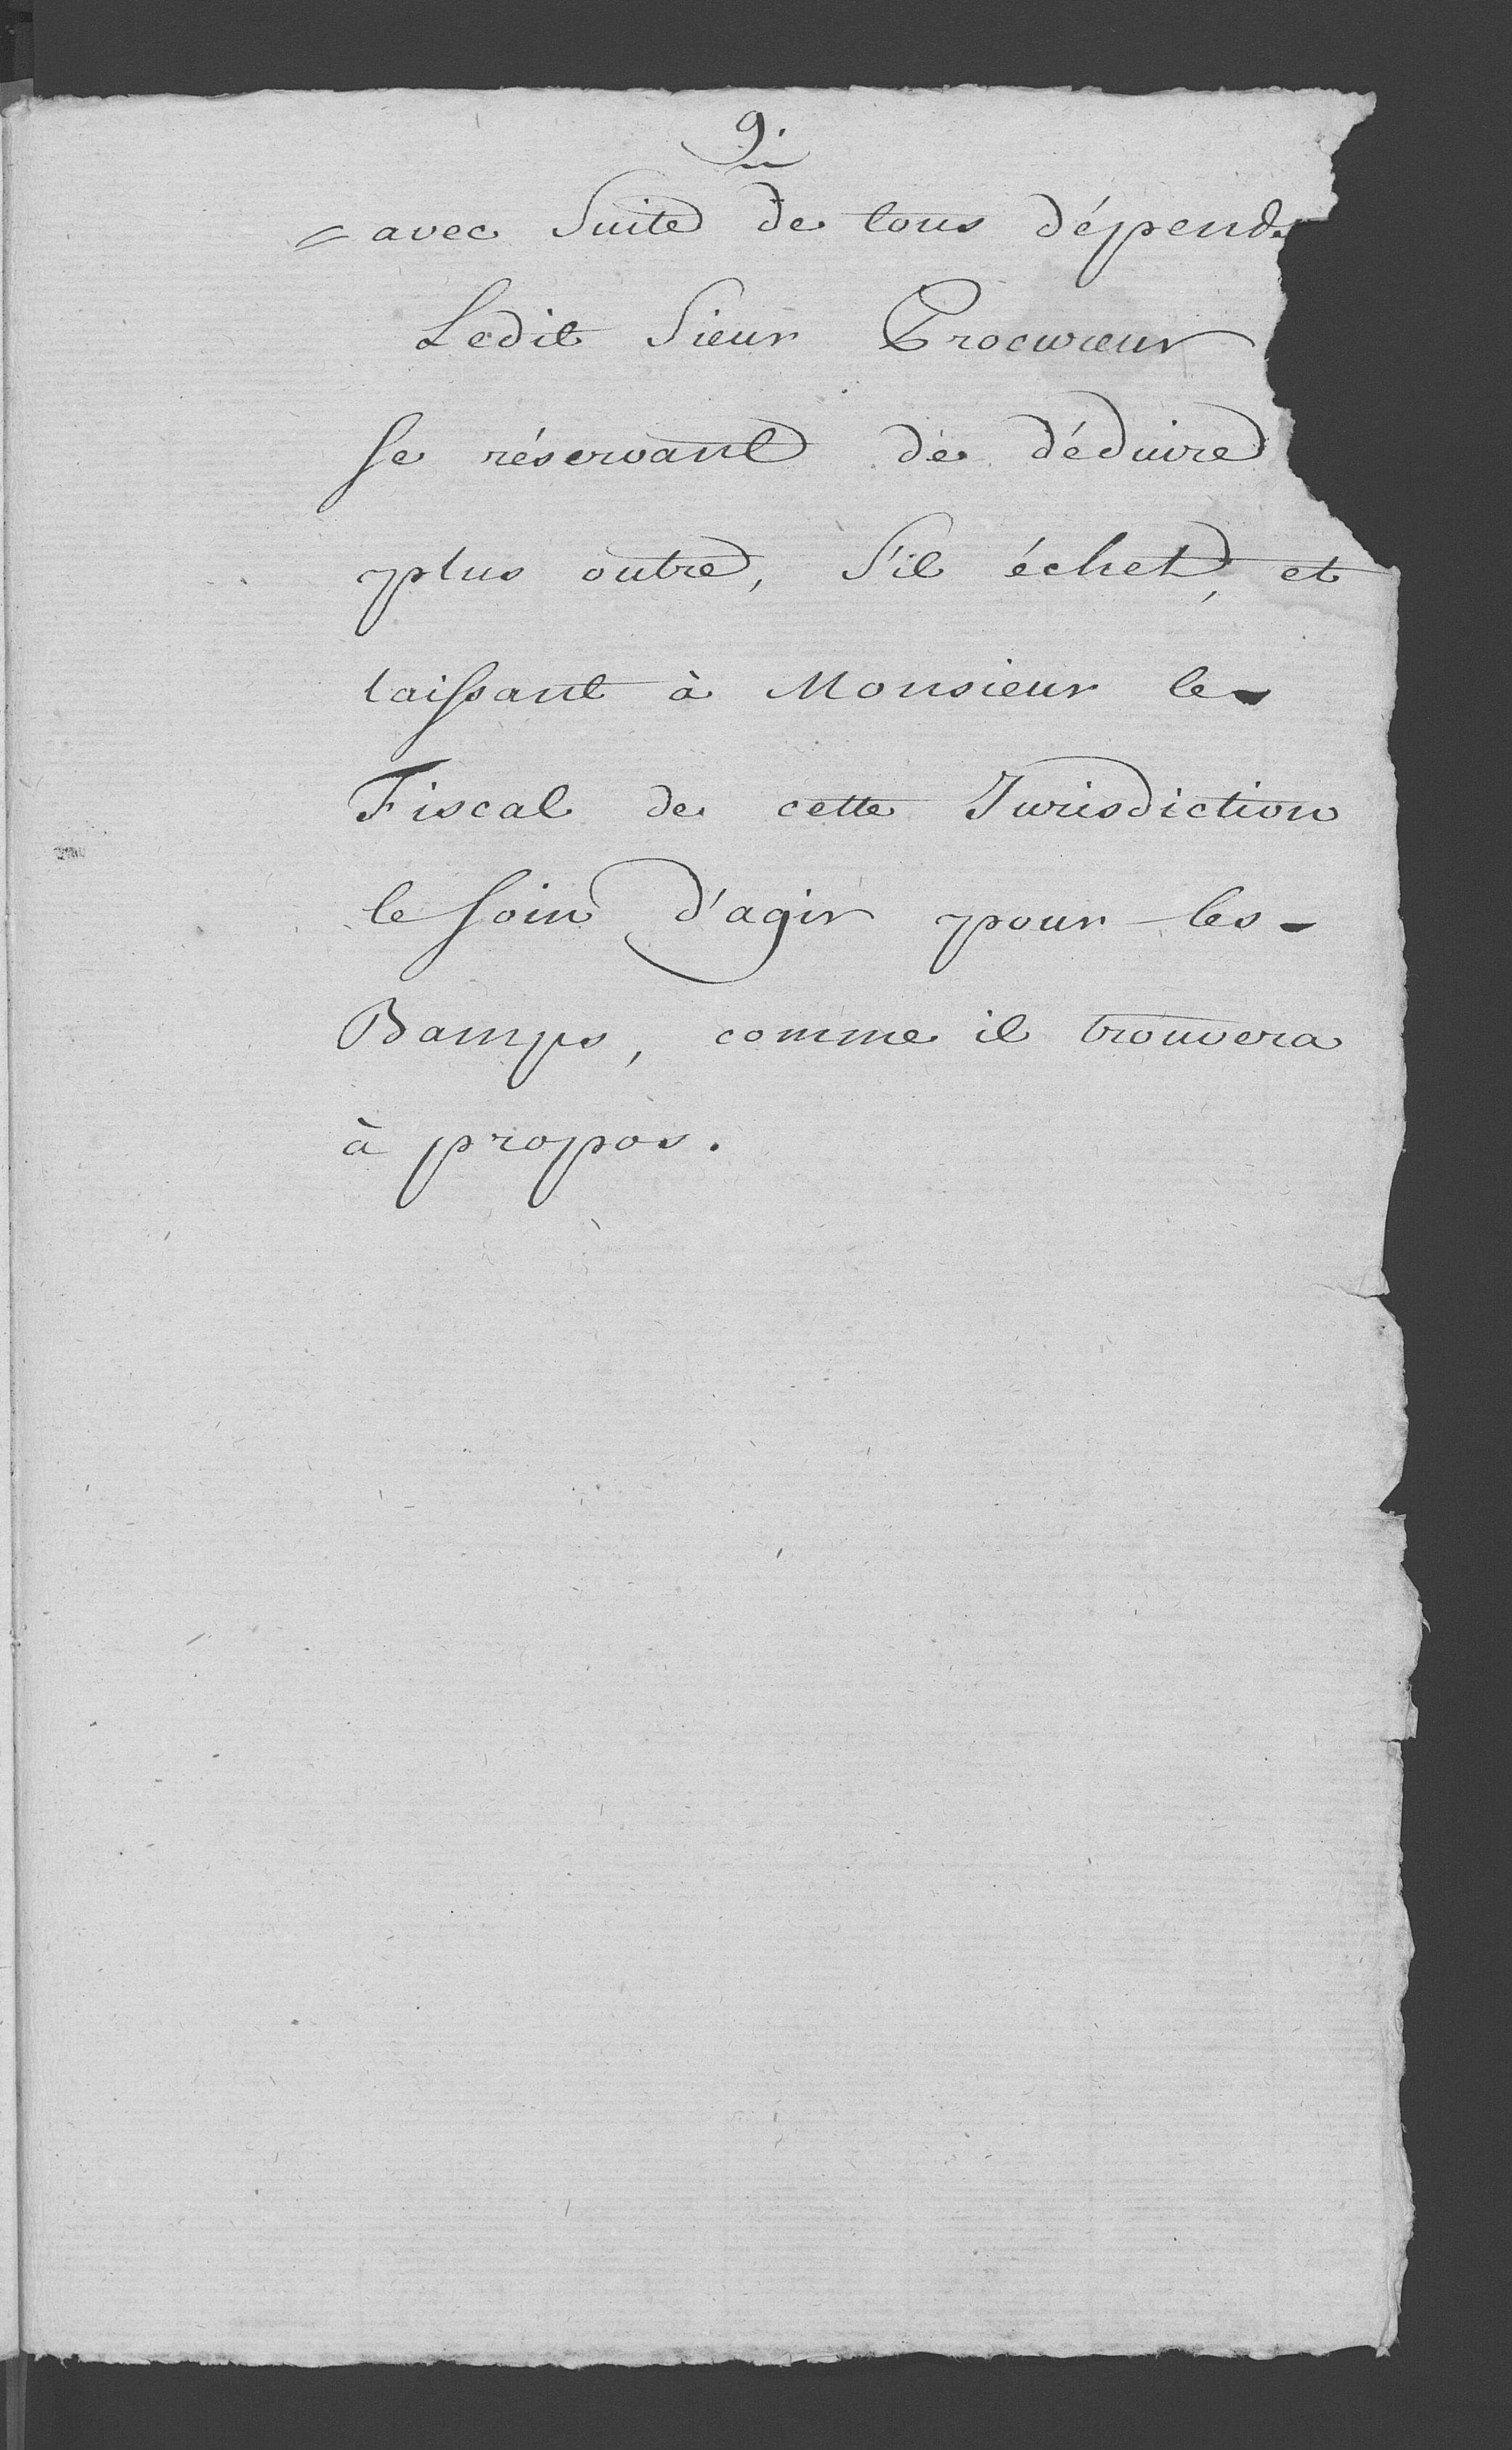 9.
= avec Suite de tous dépends
Ledit Sieur Procureur
se réservant de déduire
plus outre, S'il échet, et
laissant à Monsieur le -
Fiscal de cette Jurisdiction
le soin d'agir pour les -
Bamps, comme il trouvera
à propos.